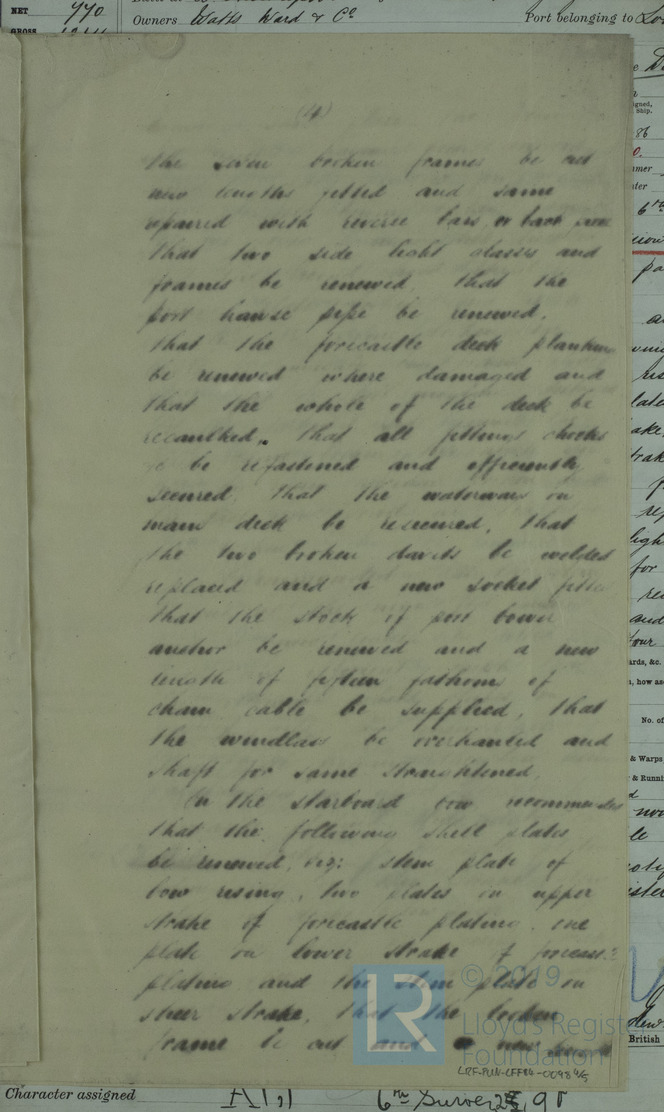 NET 770
Owners Watts Ward & Co
Port belonging to
GROSS
(4)
the seven broken frames be cut
new lengths fitted and same
repaired with reverse bars
that two side light glasses and
frames be renewed, that the
port hawse pipe be renewed,
that the forecastle deck planking
be renewed where damaged and
that the whole of the deck be
recaulked, that all fittings chocks
be refastened and efficiently
secured, that the waterways on
main deck be renewed, that
the two broken davits be welded
replaced and a new socket fitted
that the stock of port bower
anchor be renewed and a new
length of fifteen fathoms of
chain cable be supplied, that
the windlass be overhauled and
shaft for same straightened.
On the starboard bow recommended
that the following shell plates
be renewed, viz: stem plate of
bow rising, two plates on upper
strake of forecastle plating, one
plate on lower strake of
plating and the stem plate on
sheer strake, that the broken
frame be cut and a new
LR
© 2019
Lloyd's Register
Foundation
LRF-PUN-
Character assigned
6th Survey
British
No. of
& Warps